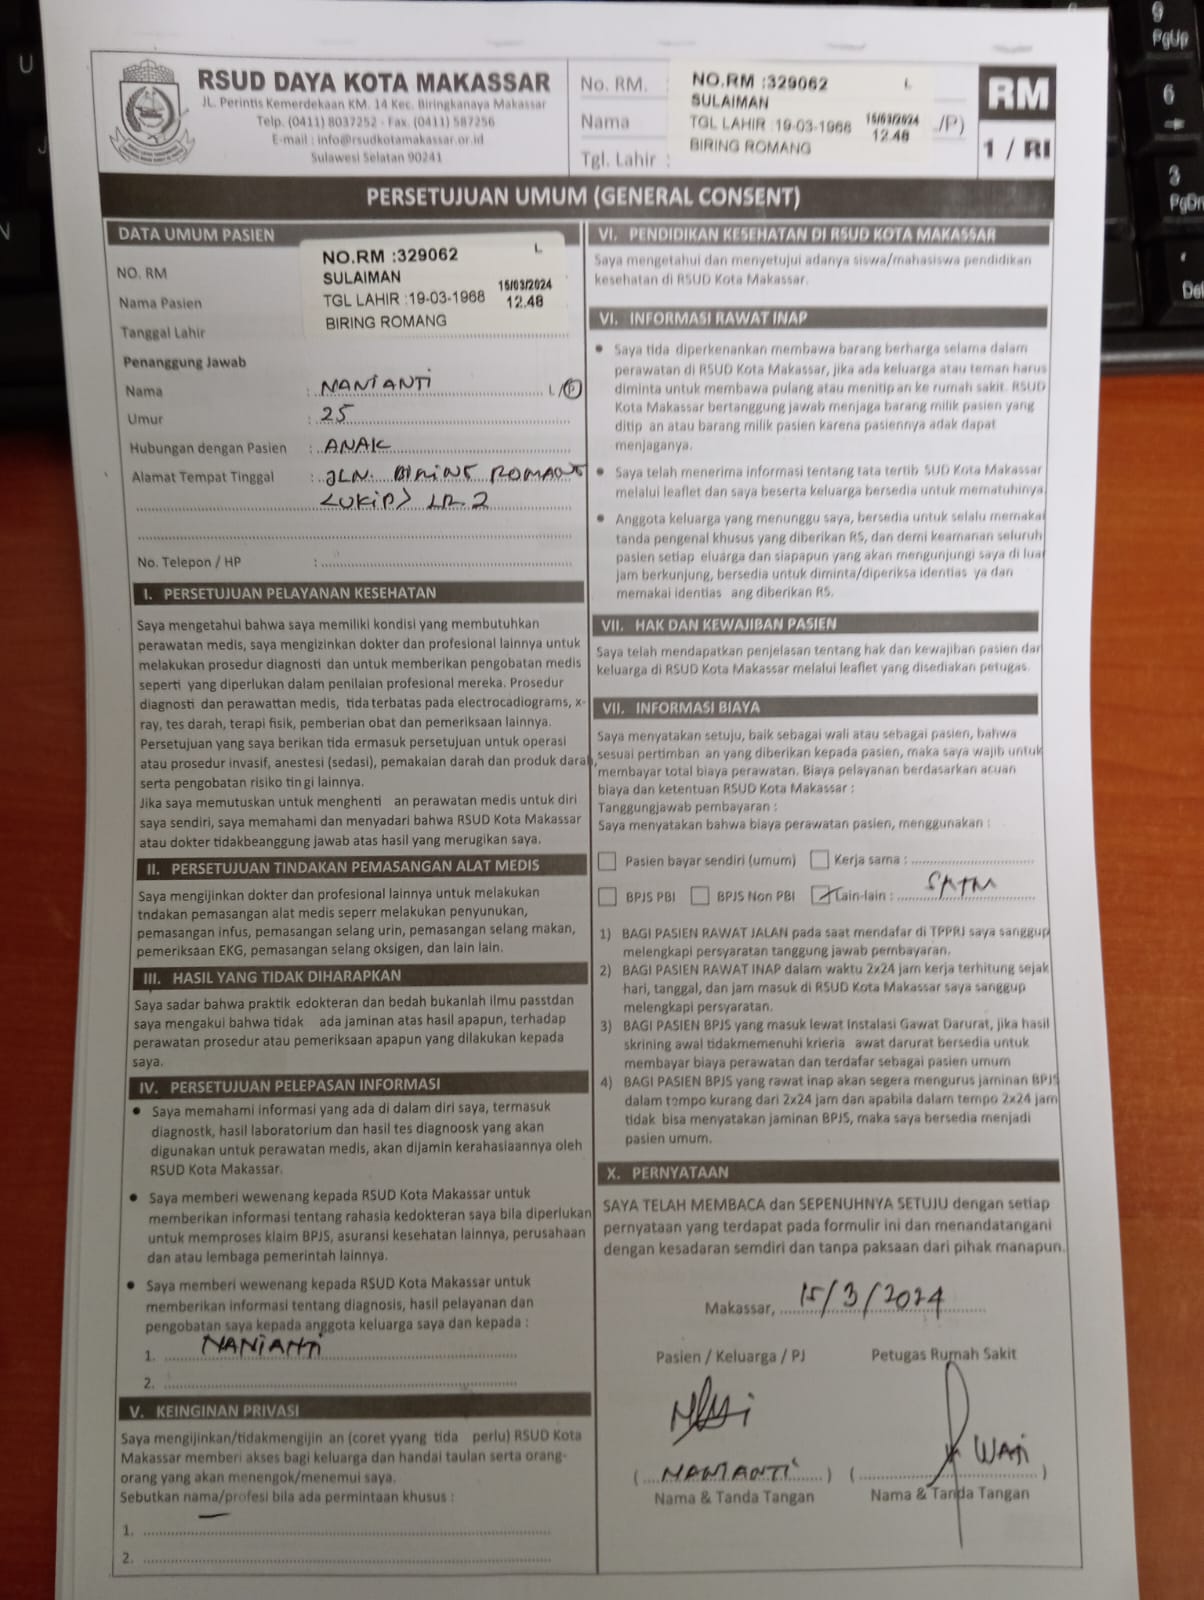 RSUD DAYA KOTA MAKASSAR
JL. Perintis Kemerdekaan KM. 14 Kec. Biringkanaya Makassar
Telp. (0411) 8037252 - Fax. (0411) 587256
E-mail : info@rsudkotamakassar.or.id
Sulawesi Selatan 90241
No. RM.
Nama
Tgl. Lahir :
NO.RM :329062 L
SULAIMAN
TGL LAHIR :19-03-1968
15/03/2024
12.48
BIRING ROMANG
/P)
RM
1 / RI
PERSETUJUAN UMUM (GENERAL CONSENT)
DATA UMUM PASIEN
NO. RM
Nama Pasien
Tanggal Lahir
NO.RM :329062 L
SULAIMAN
TGL LAHIR :19-03-1968
15/03/2024
12.48
BIRING ROMANG
Penanggung Jawab
Nama : NANIANTI L/P
Umur : 25
Hubungan dengan Pasien : ANAK
Alamat Tempat Tinggal : JLN. BIRING ROMANG
LR 2
No. Telepon / HP :
I. PERSETUJUAN PELAYANAN KESEHATAN
Saya mengetahui bahwa saya memiliki kondisi yang membutuhkan
perawatan medis, saya mengizinkan dokter dan profesional lainnya untuk
melakukan prosedur diagnosti dan untuk memberikan pengobatan medis
seperti yang diperlukan dalam penilaian profesional mereka. Prosedur
diagnosti dan perawattan medis, tida terbatas pada electrocadiograms, x-
ray, tes darah, terapi fisik, pemberian obat dan pemeriksaan lainnya.
Persetujuan yang saya berikan tida ermasuk persetujuan untuk operasi
atau prosedur invasif, anestesi (sedasi), pemakaian darah dan produk darah,
serta pengobatan risiko tin gi lainnya.
Jika saya memutuskan untuk menghenti an perawatan medis untuk diri
saya sendiri, saya memahami dan menyadari bahwa RSUD Kota Makassar
atau dokter tidakbeanggung jawab atas hasil yang merugikan saya.
II. PERSETUJUAN TINDAKAN PEMASANGAN ALAT MEDIS
Saya mengijinkan dokter dan profesional lainnya untuk melakukan
tndakan pemasangan alat medis seperr melakukan penyunukan,
pemasangan infus, pemasangan selang urin, pemasangan selang makan,
pemeriksaan EKG, pemasangan selang oksigen, dan lain lain.
III. HASIL YANG TIDAK DIHARAPKAN
Saya sadar bahwa praktik edokteran dan bedah bukanlah ilmu passtdan
saya mengakui bahwa tidak ada jaminan atas hasil apapun, terhadap
perawatan prosedur atau pemeriksaan apapun yang dilakukan kepada
saya.
IV. PERSETUJUAN PELEPASAN INFORMASI
• Saya memahami informasi yang ada di dalam diri saya, termasuk
diagnostk, hasil laboratorium dan hasil tes diagnoosk yang akan
digunakan untuk perawatan medis, akan dijamin kerahasiaannya oleh
RSUD Kota Makassar.
• Saya memberi wewenang kepada RSUD Kota Makassar untuk
memberikan informasi tentang rahasia kedokteran saya bila diperlukan
untuk memproses klaim BPJS, asuransi kesehatan lainnya, perusahaan
dan atau lembaga pemerintah lainnya.
• Saya memberi wewenang kepada RSUD Kota Makassar untuk
memberikan informasi tentang diagnosis, hasil pelayanan dan
pengobatan saya kepada anggota keluarga saya dan kepada :
1. NANIANTI
2.
V. KEINGINAN PRIVASI
Saya mengijinkan/tidakmengijin an (coret yyang tida perlu) RSUD Kota
Makassar memberi akses bagi keluarga dan handai taulan serta orang-
orang yang akan menengok/menemui saya.
Sebutkan nama/profesi bila ada permintaan khusus :
1.
2.
VI. PENDIDIKAN KESEHATAN DI RSUD KOTA MAKASSAR
Saya mengetahui dan menyetujui adanya siswa/mahasiswa pendidikan
kesehatan di RSUD Kota Makassar.
VI. INFORMASI RAWAT INAP
• Saya tida diperkenankan membawa barang berharga selama dalam
perawatan di RSUD Kota Makassar, jika ada keluarga atau teman harus
diminta untuk membawa pulang atau menitip an ke rumah sakit. RSUD
Kota Makassar bertanggung jawab menjaga barang milik pasien yang
ditip an atau barang milik pasien karena pasiennya adak dapat
menjaganya.
• Saya telah menerima informasi tentang tata tertib SUD Kota Makassar
melalui leaflet dan saya beserta keluarga bersedia untuk mematuhinya
• Anggota keluarga yang menunggu saya, bersedia untuk selalu memakai
tanda pengenal khusus yang diberikan RS, dan demi keamanan seluruh
pasien setiap eluarga dan siapapun yang akan mengunjungi saya di luar
jam berkunjung, bersedia untuk diminta/diperiksa identias ya dan
memakai identias ang diberikan RS.
VII. HAK DAN KEWAJIBAN PASIEN
Saya telah mendapatkan penjelasan tentang hak dan kewajiban pasien dar
keluarga di RSUD Kota Makassar melalui leaflet yang disediakan petugas.
VII. INFORMASI BIAYA
Saya menyatakan setuju, baik sebagai wali atau sebagai pasien, bahwa
sesuai pertimban an yang diberikan kepada pasien, maka saya wajib untuk
membayar total biaya perawatan. Biaya pelayanan berdasarkan acuan
biaya dan ketentuan RSUD Kota Makassar :
Tanggungjawab pembayaran :
Saya menyatakan bahwa biaya perawatan pasien, menggunakan :
Pasien bayar sendiri (umum) Kerja sama :
BPJS PBI BPJS Non PBI Lain-lain : SKTM
1) BAGI PASIEN RAWAT JALAN pada saat mendafar di TPPRJ saya sanggup
melengkapi persyaratan tanggung jawab pembayaran.
2) BAGI PASIEN RAWAT INAP dalam waktu 2x24 jam kerja terhitung sejak
hari, tanggal, dan jam masuk di RSUD Kota Makassar saya sanggup
melengkapi persyaratan.
3) BAGI PASIEN BPJS yang masuk lewat Instalasi Gawat Darurat, jika hasil
skrining awal tidakmemenuhi krieria awat darurat bersedia untuk
membayar biaya perawatan dan terdafar sebagai pasien umum
4) BAGI PASIEN BPJS yang rawat inap akan segera mengurus jaminan BPJS
dalam tempo kurang dari 2x24 jam dan apabila dalam tempo 2x24 jam
tidak bisa menyatakan jaminan BPJS, maka saya bersedia menjadi
pasien umum.
X. PERNYATAAN
SAYA TELAH MEMBACA dan SEPENUHNYA SETUJU dengan setiap
pernyataan yang terdapat pada formulir ini dan menandatangani
dengan kesadaran semdiri dan tanpa paksaan dari pihak manapun.
Makassar, 15/3/2024
Pasien / Keluarga / PJ Petugas Rumah Sakit
( NANIANTI ) ( )
Nama & Tanda Tangan Nama & Tanda Tangan
9
PgUp
6
3
PgDn
Del
U